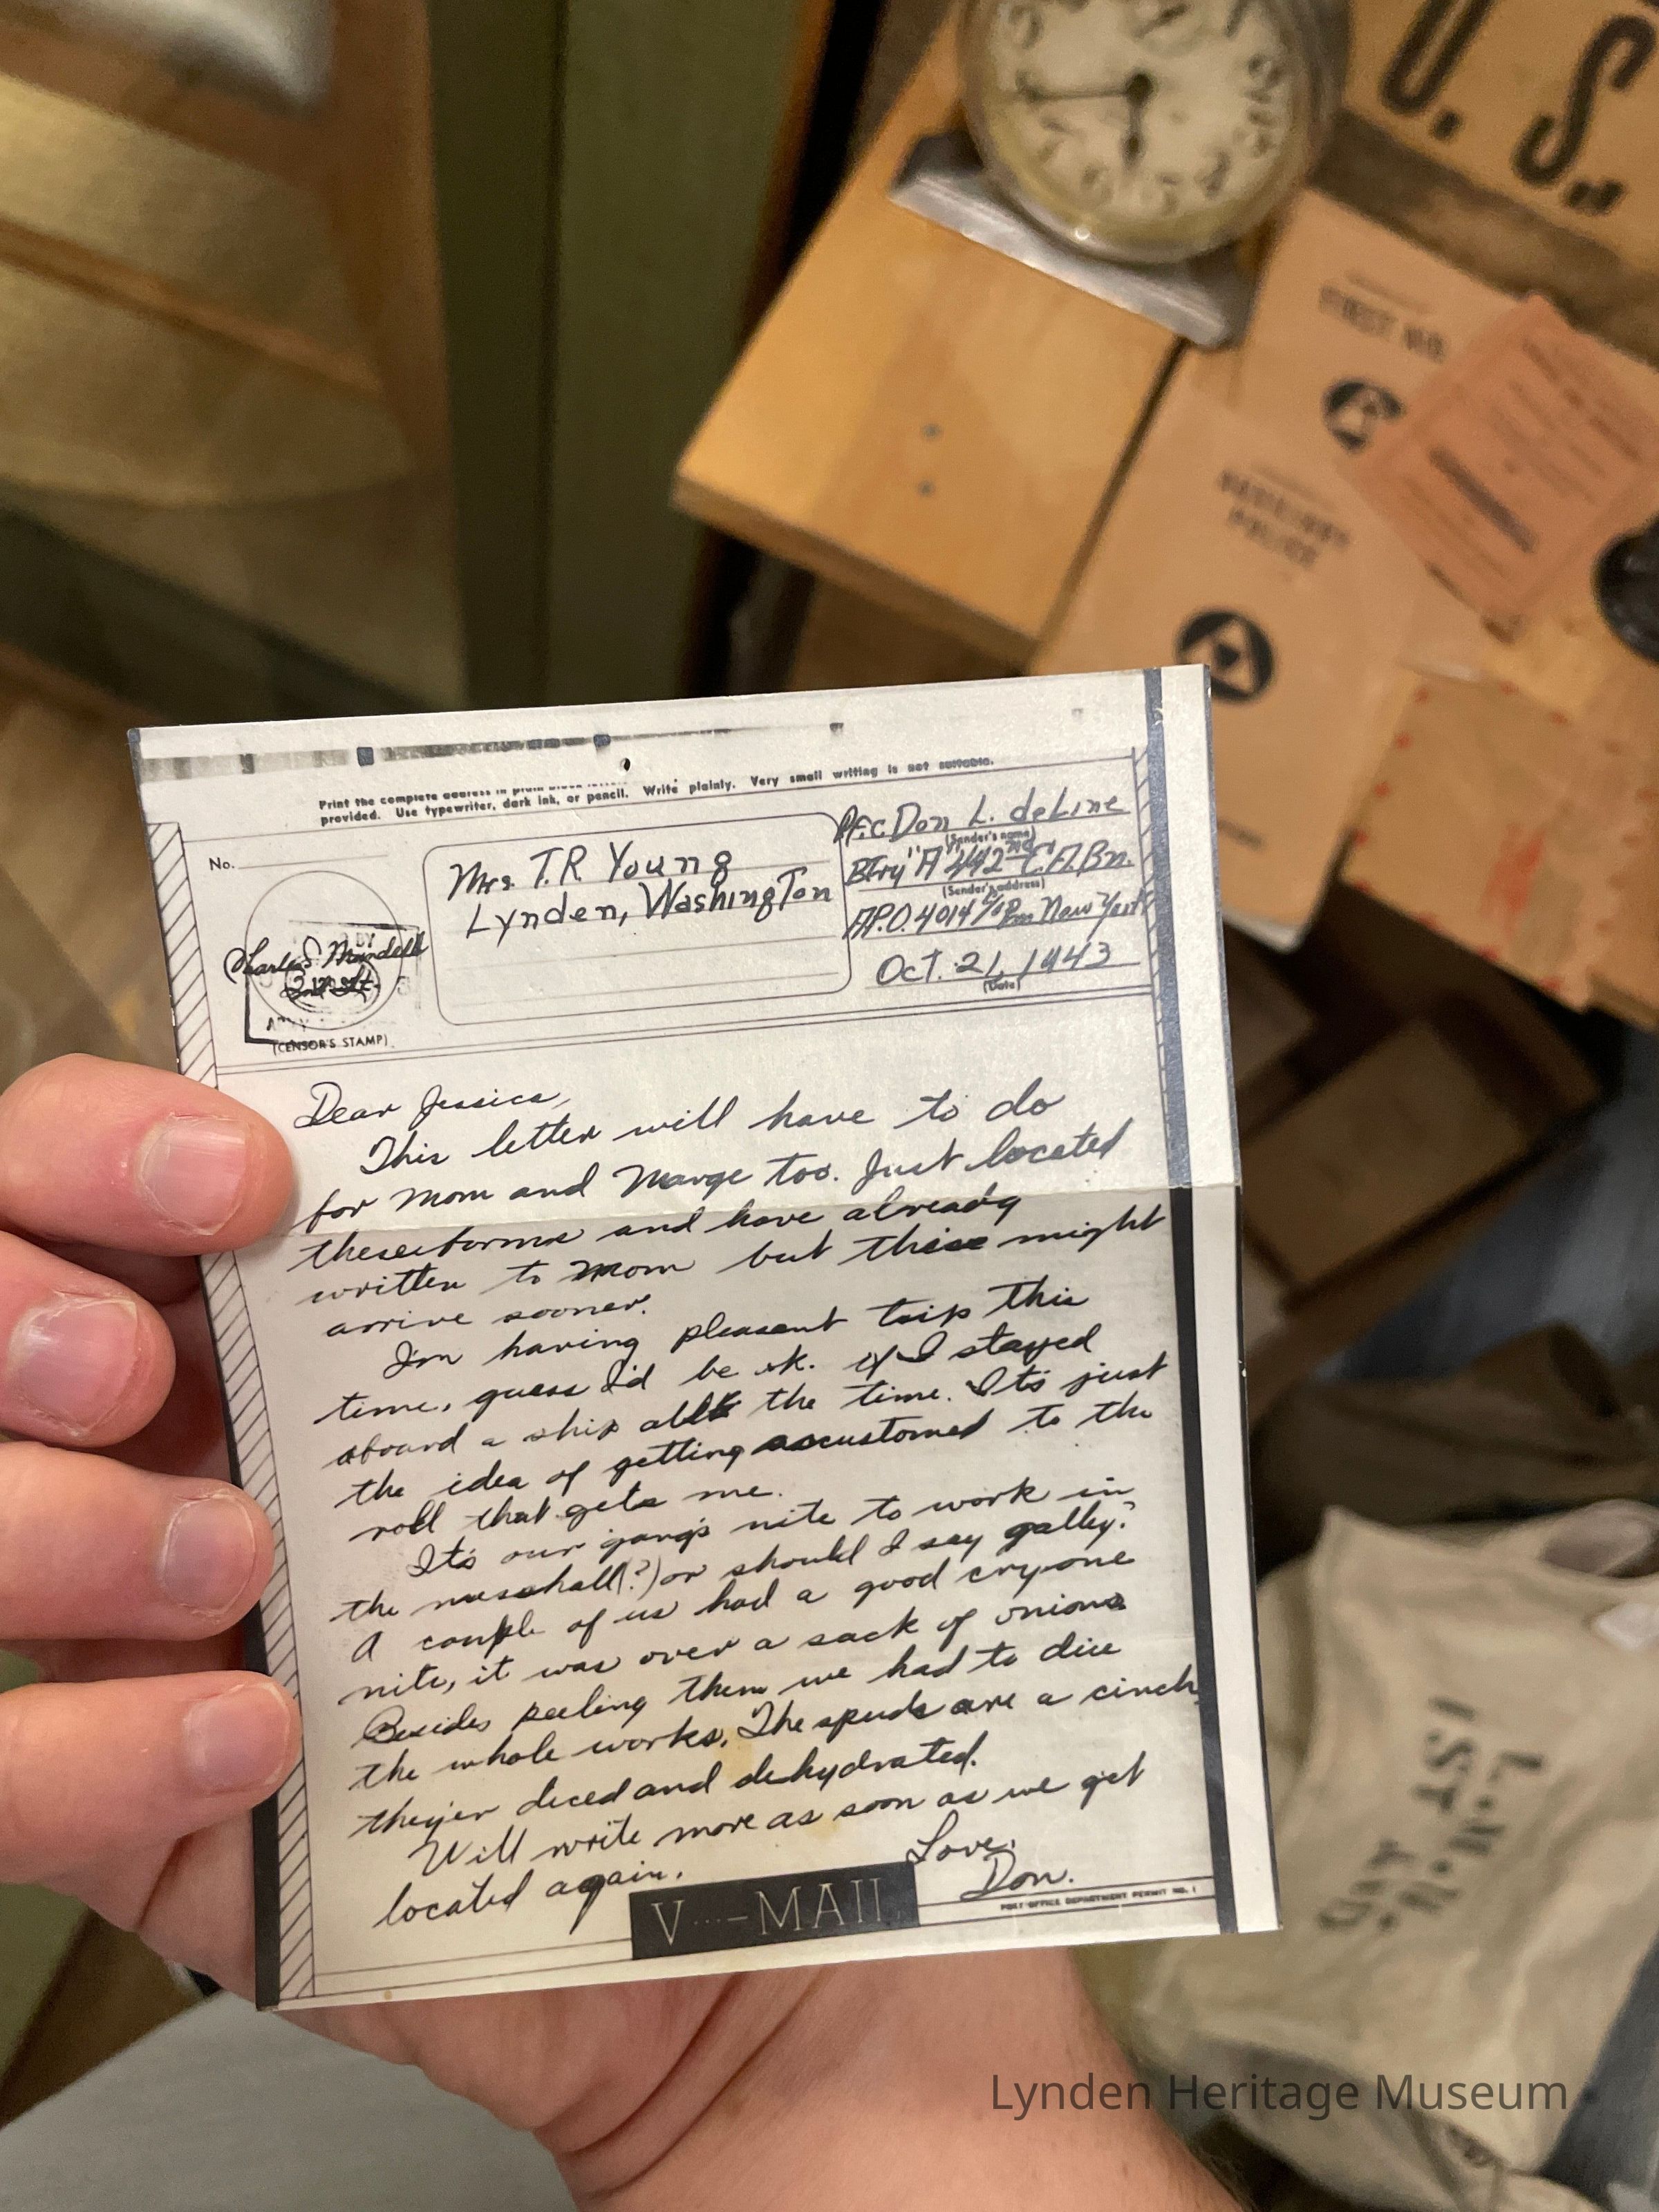 U. S.
FIRST AID
AUXILIARY
POLICE
Print the complete address in plain block letters
provided. Use typewriter, dark ink, or pencil. Write plainly. Very small writing is not suitable.
No.
Mrs. T.R Young
Lynden, Washington
Pfc. Don L. deLine
(Sender's name)
Btry "A" 442nd C.A.Bn.
(Sender's address)
A.P.O. 4014 c/o Pm New York
Oct. 21, 1943
(Date)
BY
Charles Mandell
2nd Lt.
(CENSOR'S STAMP)
Dear Jessica,
This letter will have to do
for Mom and Marge too. Just located
these forms and have already
written to Mom but this might
arrive sooner.
I'm having pleasant trip this
time, guess I'd be ok. if I stayed
aboard a ship all the time. It's just
the idea of getting accustomed to the
roll that gets me.
It's our gang's nite to work in
the messhall(?) or should I say galley?
A couple of us had a good cry one
nite, it was over a sack of onions
Besides peeling them we had to dice
the whole works. The spuds are a cinch,
they'er diced and dehydrated.
Will write more as soon as we get
located again.
Love,
Don.
V···—MAIL
POST OFFICE DEPARTMENT PERMIT NO. 1
Lynden Heritage Museum